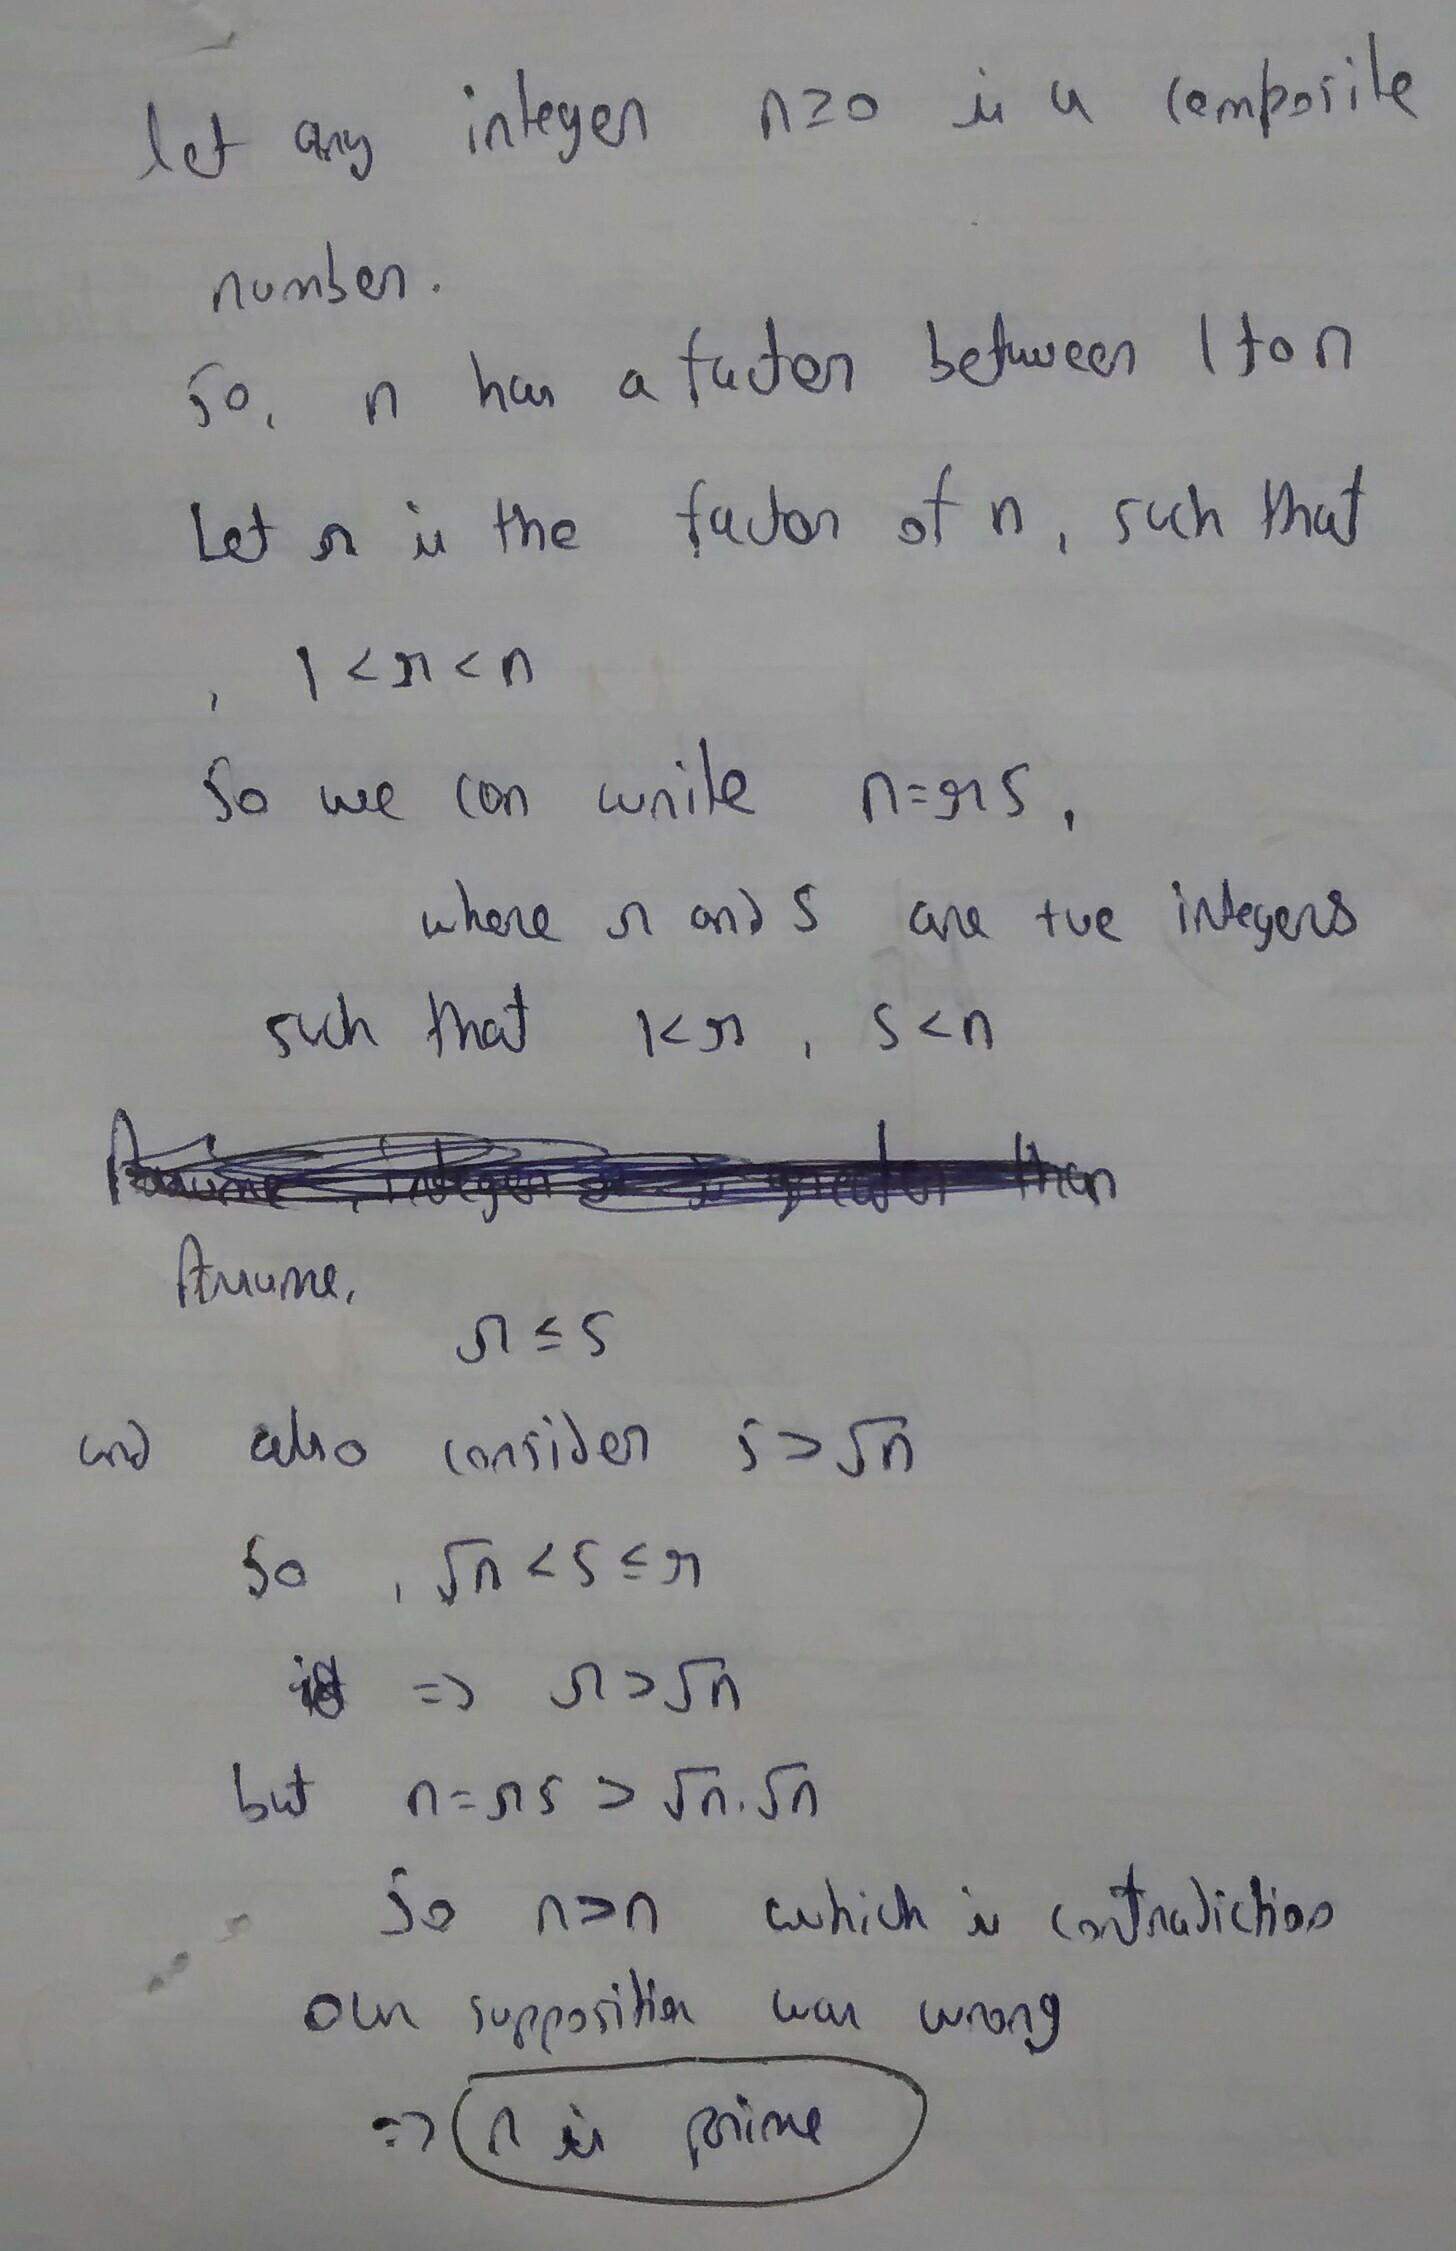 let any integer n≥0 is a composite
number.
So, n has a factor between 1 to n
Let r is the factor of n, such that
, 1<r<n
So we can write n=rs,
where r and s are +ve integers
such that 1<r, s<n
Assume, integer is greater than
Assume,
r≤s
and also consider s>√n
So, √n<s≤r
=> r>√n
but n=rs > √n.√n
So n>n which is contradiction
our supposition was wrong
=> n is prime